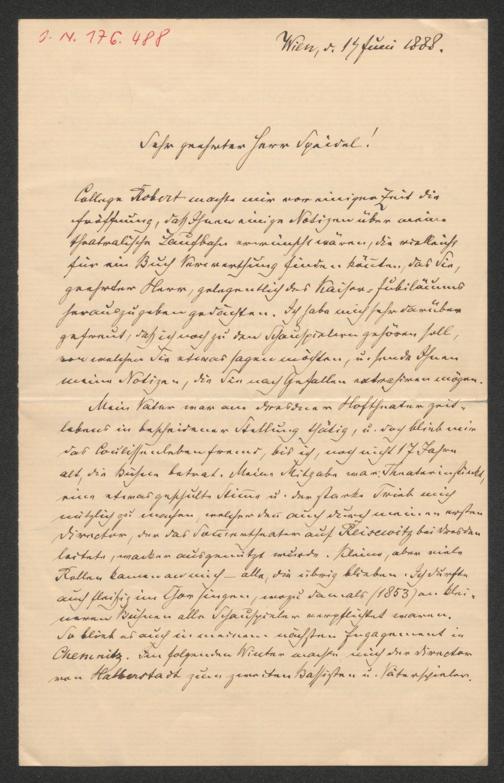 J. N. 176.488
Wien, d. 14 Juni 1888.
Sehr geehrter Herr Speidel!
College Robert machte mir vor einiger Zeit die
Eröffnung, daß Ihnen einige Notizen über meine
theatralische Laufbahn erwünscht wären, die vielleicht
für ein Buch Verwerthung finden könnten, das Sie,
geehrter Herr, gelegentlich des Kaiser-Jubiläums
herauszugeben gedächten. Ich habe mich sehr darüber
gefreut, daß ich noch zu den Schauspielern gehören soll,
von welchen Sie etwas sagen möchten, u. sende Ihnen
meine Notizen, die Sie nach Gefallen extrahiren mögen.
Mein Vater war am Dresdner Hoftheater zeit-
lebens in bescheidener Stellung thätig, u. doch blieb mir
das Coulissenleben fremd, bis ich, noch nicht 17 Jahre
alt, die Bühne betrat. Meine Mitgabe war Theaterinstinkt,
eine etwas geschulte Stimme u. der starke Trieb mich
nützlich zu machen, welcher denn auch durch meinen ersten
Director, der das Somertheater auf Reisewitz bei Dresden
leitete, wacker ausgenützt wurde. Kleine, aber viele
Rollen kamen an mich – alle, die übrig blieben. Ich durfte
auch fleißig im Chor singen, wozu damals (1853) an klei-
neren Bühnen alle Schauspieler verpflichtet waren.
So blieb es auch in meinem nächsten Engagement in
Chemnitz. Den folgenden Winter machte mich der Director
von Halberstadt zum zweiten Bassisten u. Väterspieler.